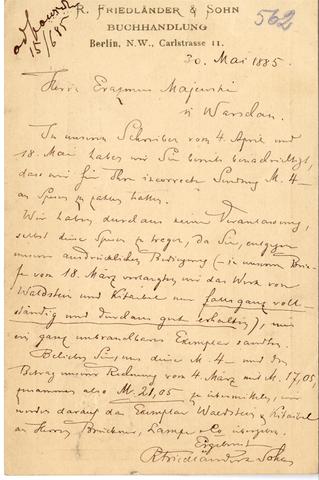 R. FRIEDLÄNDER & SOHN
BUCHHANDLUNG
Berlin, N.W., Carlstrasse 11.
562
15/6 85
30. Mai 1885.
Herrn Erazmus Majewski
in Warschau.
In unserem Schreiben vom 4. April und
18. Mai haben wir Sie bereits benachrichtigt,
dass wir für Ihre incorrecte Sendung M. 4–
an Spesen zu zahlen hatten.
Wir haben durchaus keine Veranlassung,
selbst diese Spesen zu tragen, da Sie, entgegen
unserer ausdrücklichen Bedingung (– in unserem Brie-
fe vom 18. März verlangten wir das Werk von
Waldstein und Kitaibel nur voll-
ständig und durchaus gut erhalten), uns
ein ganz unbrauchbares Exemplar sandten.
Belieben Sie, uns diese M. 4– und den
Betrag unserer Rechnung vom 4. März mit M. 17,05,
zusammen also M. 21,05 zu übermitteln, wir
werden darauf das Exemplar Waldstein & Kitaibel
an Herren Brückner, Lampe & Co übergeben.
Ergebenst
R Friedländer & Sohn